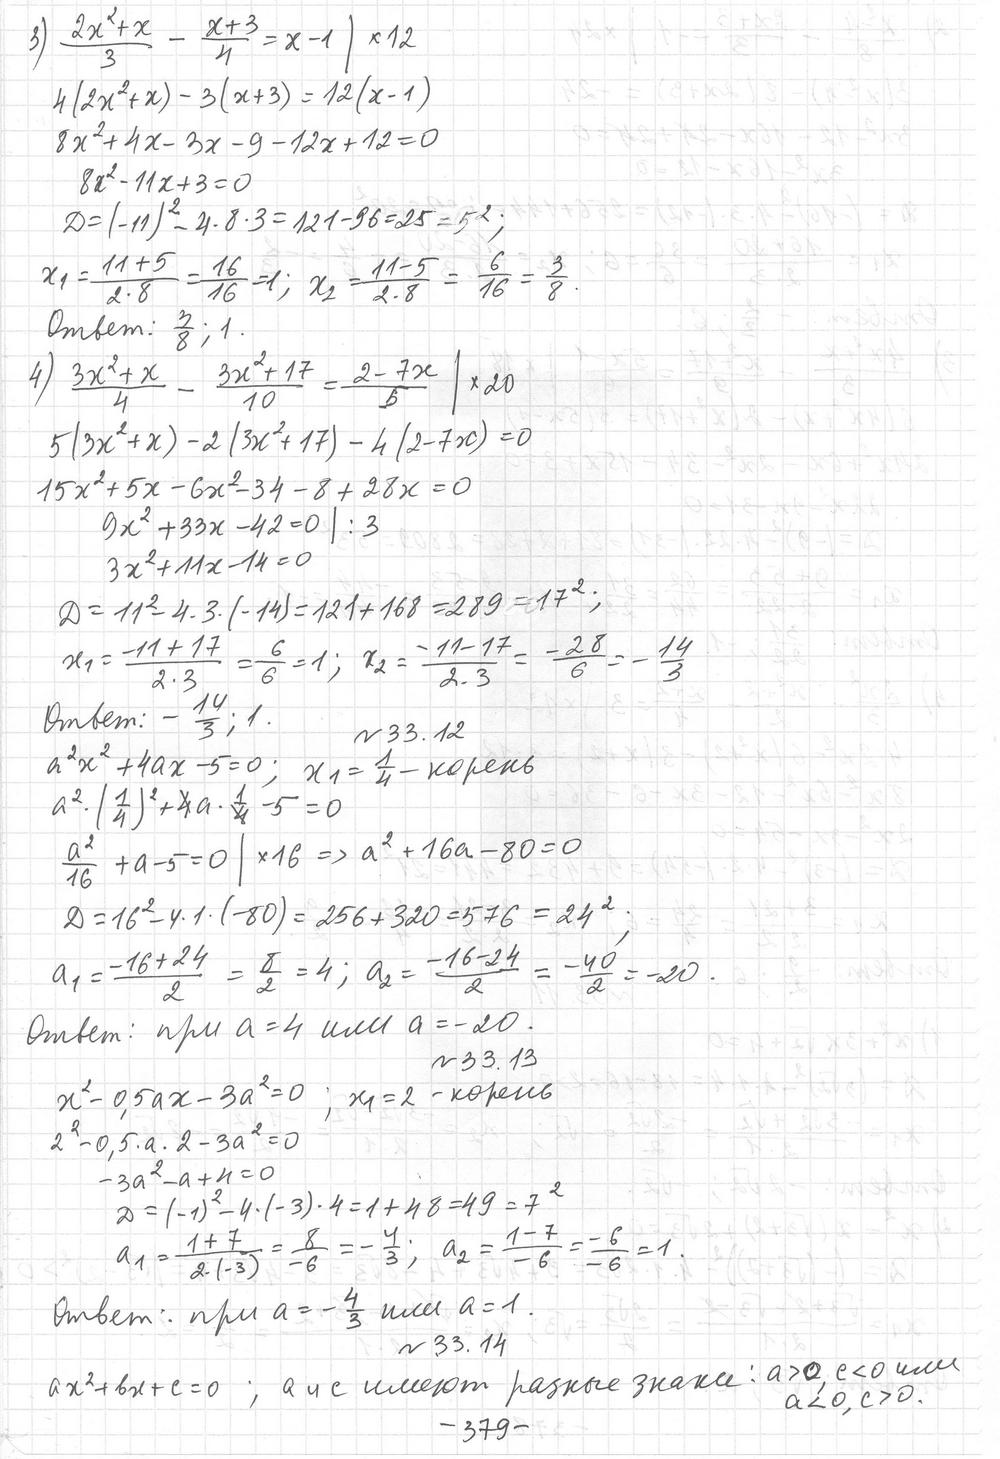 3) (2x²+x)/3 − (x+3)/4 = x−1 | ×12
4(2x²+x) − 3(x+3) = 12(x−1)
8x²+4x−3x−9−12x+12=0
8x²−11x+3=0
D=(−11)²−4·8·3=121−96=25=5²;
x₁=(11+5)/(2·8)=16/16=1; x₂=(11−5)/(2·8)=6/16=3/8.
Ответ: 3/8; 1.
4) (3x²+x)/4 − (3x²+17)/10 = (2−7x)/5 | ×20
5(3x²+x)−2(3x²+17)−4(2−7x)=0
15x²+5x−6x²−34−8+28x=0
9x²+33x−42=0 | :3
3x²+11x−14=0
D=11²−4·3·(−14)=121+168=289=17²;
x₁=(−11+17)/(2·3)=6/6=1; x₂=(−11−17)/(2·3)=−28/6=−14/3
Ответ: −14/3; 1.
№33.12
a²x²+4ax−5=0; x₁=1/4−корень
a²·(1/4)²+4a·1/4−5=0
a²/16+a−5=0 | ×16 => a²+16a−80=0
D=16²−4·1·(−80)=256+320=576=24²;
a₁=(−16+24)/2=8/2=4; a₂=(−16−24)/2=−40/2=−20.
Ответ: при a=4 или a=−20.
№33.13
x²−0,5ax−3a²=0; x₁=2−корень
2²−0,5·a·2−3a²=0
−3a²−a+4=0
D=(−1)²−4·(−3)·4=1+48=49=7²
a₁=(1+7)/(2·(−3))=8/−6=−4/3; a₂=(1−7)/−6=−6/−6=1.
Ответ: при a=−4/3 или a=1.
№33.14
ax²+bx+c=0; a и c имеют разные знаки: a>0, c<0 или
a<0, c>0.
−379−